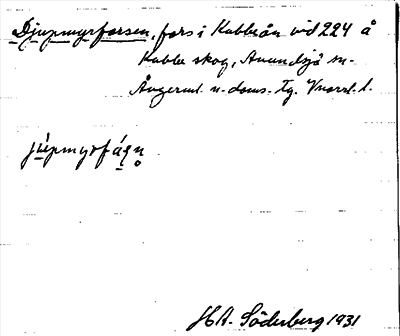 Djupmyrforsen, fors i Kubbeån vid 224 å
Kubbe skog, Anundsjö sn.
Ångerml. n. doms. tg. Vnorrl. l.
júpmyrfáṣṇ
H A. Söderberg 1931